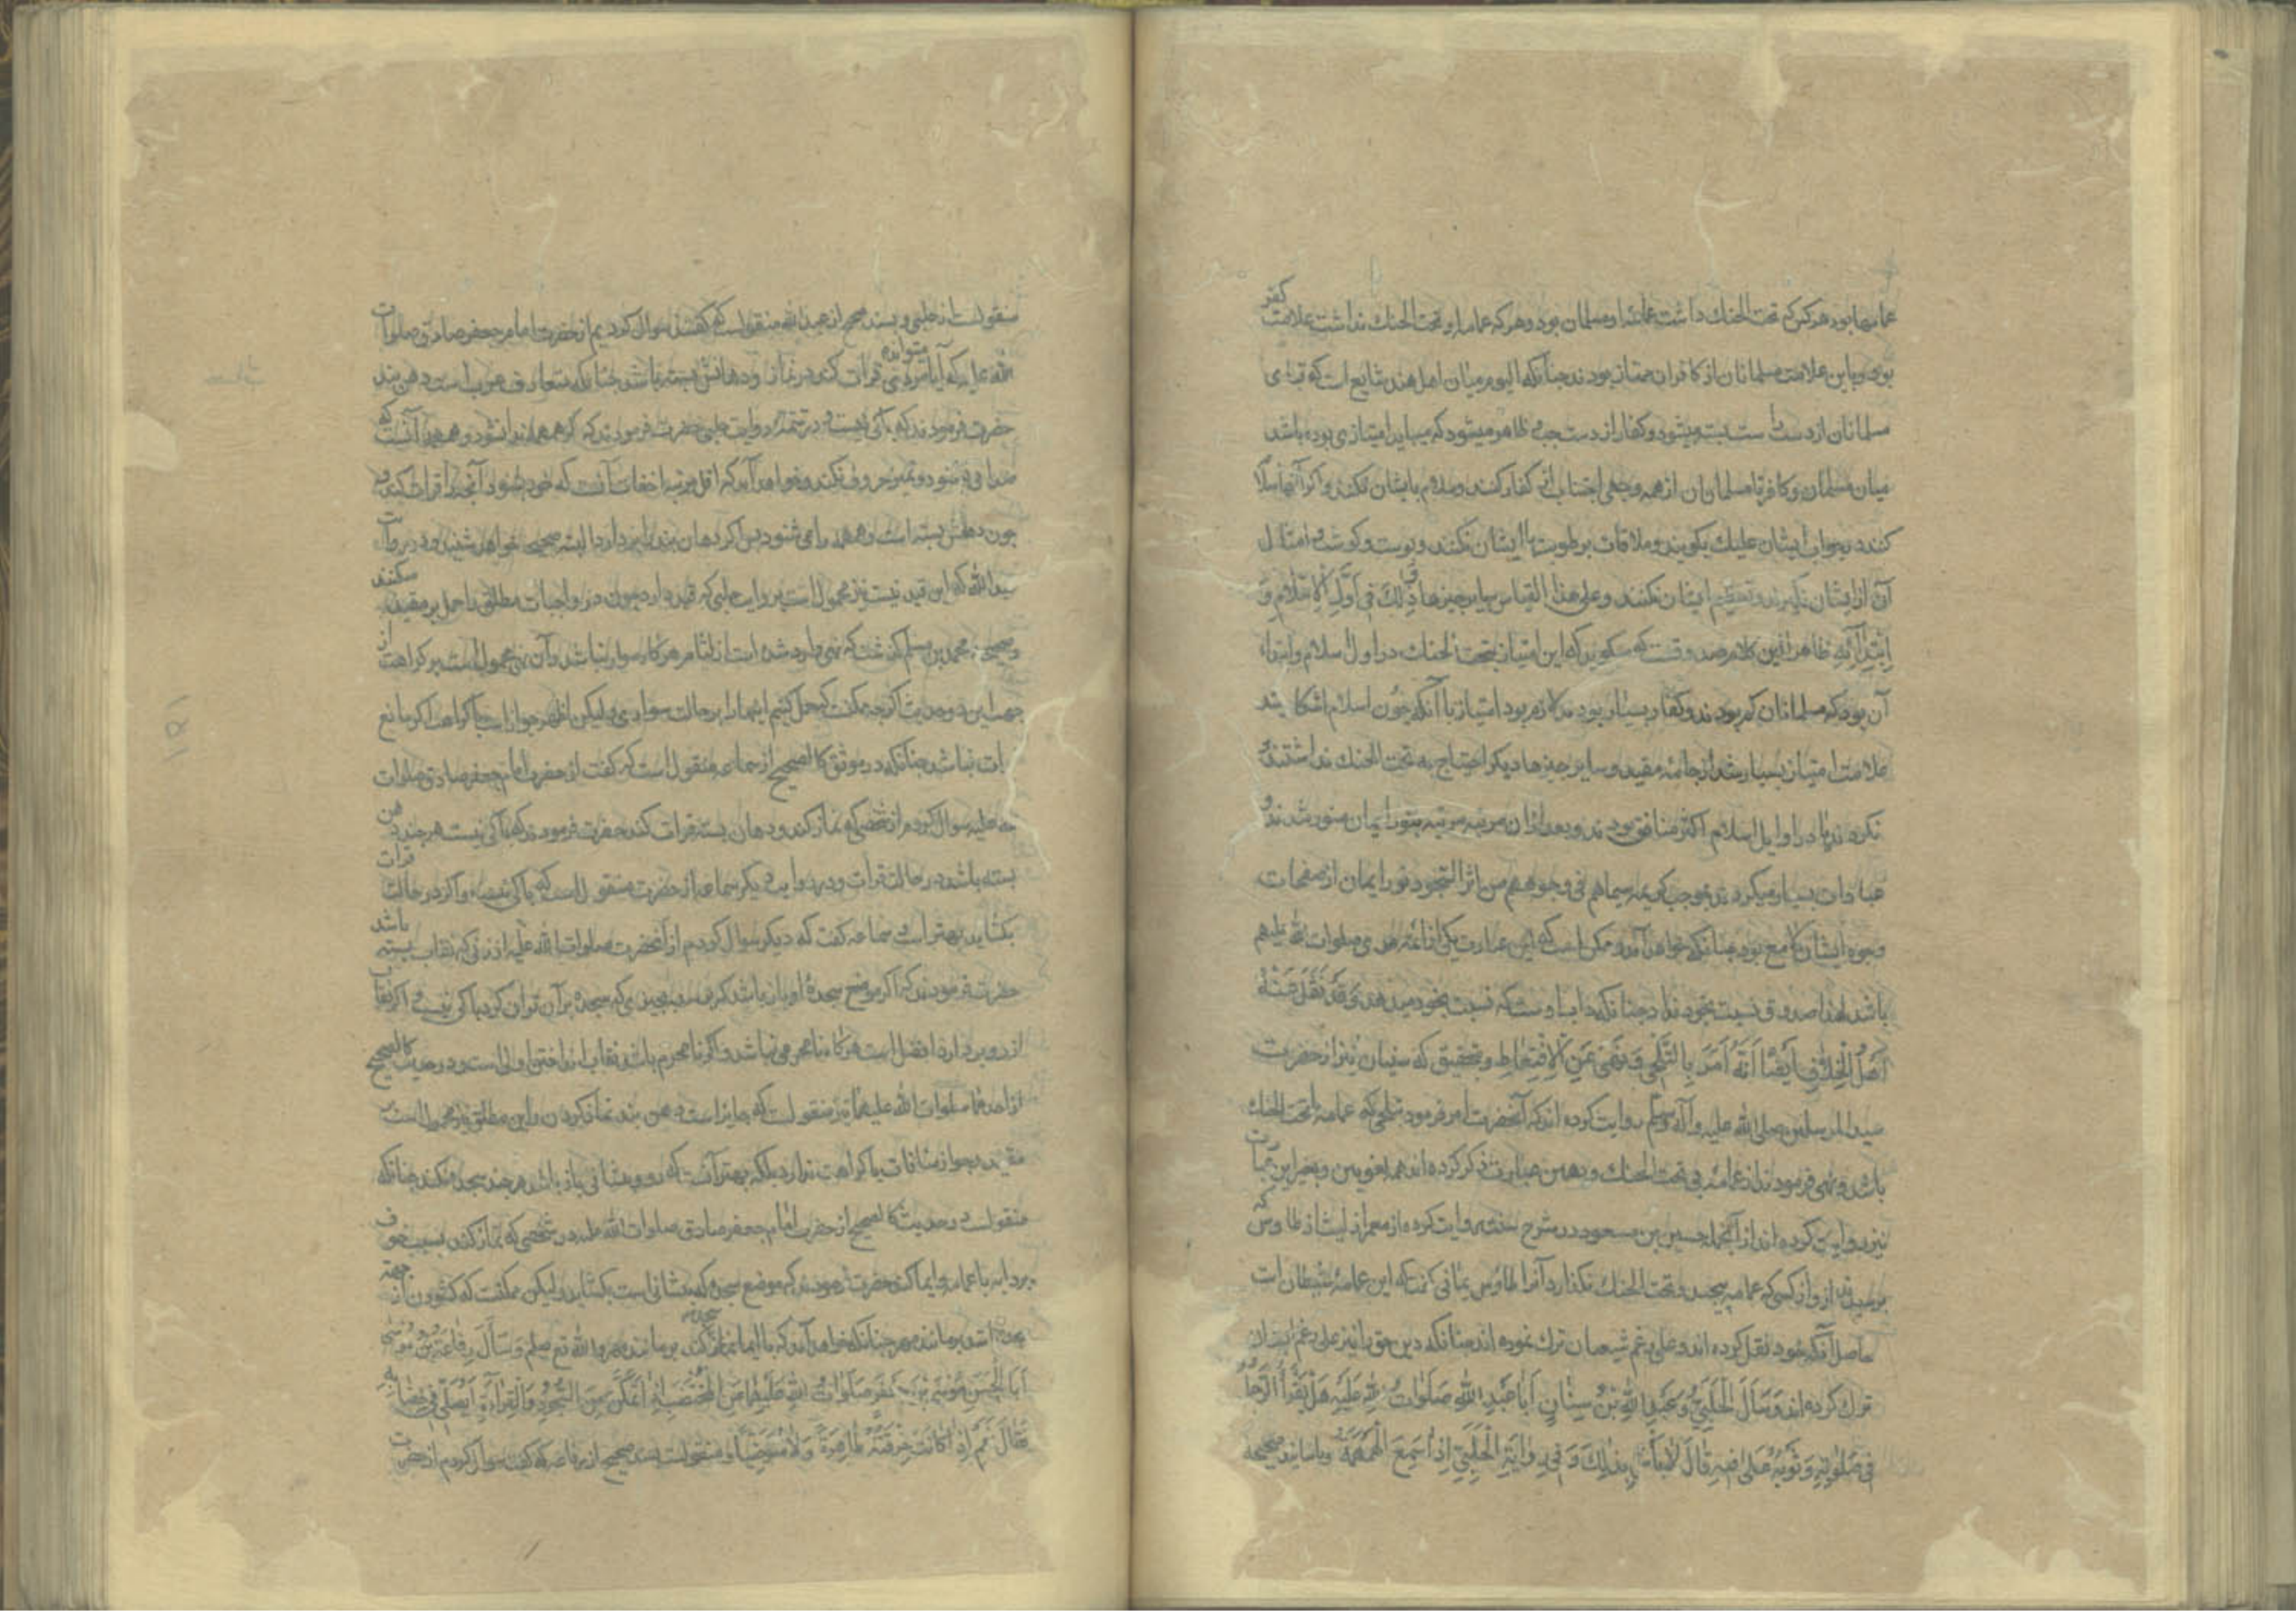 عمامها بود هر کس که تحت الحنک داشت عمامه او مسلمان بود و هر که عمامه او تحت الحنک نداشت علامت کفر
بود و باین علامت مسلمانان از کافران ممتاز بودند چنانکه الیوم میان اهل هند شایع است که قبای
مسلمانان از دست راست بسته میشود و کفار از دست چپ و ظاهر میشود که میباید امتیازی بوده باشد
میان مسلمان و کافر تا مسلمانان از همه وجهی اجتناب از کفار کنند و سلام بایشان نکنند و اکر آنها سلام
کنند در جواب ایشان علیک بکویند و ملاقات برطوبت با ایشان نکنند و پوست و کوشت و امثال
آن از ایشان نکیرند و تعظیم ایشان نکنند و علی هذا القیاس سایر چیزها ذٰلِكَ فِي اَوَّلِ الْاِسْلَامِ وَ
اِبْتِدَائِهِ ظاهرا این کلام صدوقست که میکوید که این امتیاز بتحت الحنک در اول اسلام و ابتداء
آن بود که مسلمانان کم بودند و کفار بسیار بودند لازم بود امتیاز با آنکه چون اسلام آشکارا شد
علامت امتیاز بسیار شد از جامه سفید و سایر چیزها دیکر احتیاج به تحت الحنک نداشتند
نکردند یا در اوایل اسلام اکثر منافق بودند و بعد از ان مرتبه مرتبه بنور ایمان منور شدند و
عبادات بسیار میکردند بموجب کریمه سیماهم فی وجوههم من اثر السجود نور ایمان از صفحات
وجوه ایشان لامع بود چنانکه خواهد آمد و ممکن است که این عبارت یکی از ائمه هدی صلوات الله علیهم
باشد لهذا صدوق نسبت بخود نداد چنانکه داب اوست که نسبت بخود میدهد وَقَدْ نَقَلَ عَنْهُ
اَهْلُ الْخِلَافِ اَيْضًا اَنَّهُ اَمَرَ بِالتَّلَحِّي وَنَهَىٰ عَنِ الْاِقْتِعَاطِ و بتحقیق که سنیان نیز از حضرت
سید المرسلین صلی الله علیه و آله وسلم روایت کرده اند که آنحضرت امر فرمود بتلحی که عمامه با تحت الحنک
باشد و نهی فرمودند از عمامه بی تحت الحنک و بهمین عبارت ذکر کرده اند همه لغویین و بغیر این عبارت
نیز روایت کرده اند از آنجمله حسین بن مسعود در شرح سنته روایت کرده از معمر از لیث از طاوس که
پرسیدند ازو از کسی که عمامه پیچد و تحت الحنک نکذارد آنرا طاوس یمانی کفت که این عمامه شیطان است
حاصل آنکه خود نقل کرده اند و علی رغم شیعیان ترک نموده اند چنانکه دین حق را نیز علی رغم ایشان
ترک کرده اند وَسَاَلَ الْحَلَبِيُّ وَعَبْدُ اللّٰهِ بْنُ سِنَانٍ اَبَا عَبْدِ اللّٰهِ صَلَوَاتُ اللّٰهِ عَلَيْهِ هَلْ يَقْرَأُ الرَّجُلُ
فِي صَلٰوتِهِ وَثَوْبُهُ عَلَىٰ فِيهِ قَالَ لَا بَأْسَ بِذٰلِكَ وَفِي رِوَايَةِ الْحَلَبِيِّ اِذَا سَمِعَ الْهَمْهَمَةَ و باسانید صحیحه
منقولست از حلبی و بسند صحیح از عبد الله منقولست که کفتند سؤال کردیم از حضرت امام جعفر صادق صلوات
الله علیه که آیا مردی میتواند قرات کند در نماز و دهانش بسته باشد چنانکه متعارف عرب است دهن بند
حضرت فرمودند که باکی نیست و در تتمه روایت حلبی حضرت فرمودند که اکر همهمه را بشنود و همهمه آنست که
صدا می شنود و تمییز حروف نکند و خواهد آمد که اقل مرتبه اخفات آنست که خود بشنود آنچه را قرات کند و
چون دهنش بسته است و همهمه را می شنود پس اکر دهان بند را بردارد البته صحیح خواهد شنید و در روایت
عبد الله که این قید نیست نیز محمول است بر روایت حلبی که قید دارد چون در واجبات مطلق را حمل بر مقید میکنند
و صحیحه محمد بن مسلم کذشت که نهی وارد شده است از لثام هرکاه سوار نباشد و آن نهی محمول است بر کراهت از
جهت این دو حدیث اکرچه ممکنست که حمل کنیم اینها را بر حالت سواری ولیکن اظهر جواز است با کراهت اکر مانع
قرات نباشد چنانکه در موثق کالصحیح از سماعه منقول است که کفت از حضرت امام جعفر صادق صلوات
الله علیه سؤال کردم از شخصی که نماز کند و دهان بسته قرات کند حضرت فرمودند که باکی نیست هرچند دهن
بسته باشد در حالت قرات و در روایت دیکر سماعه از حضرت منقول است که باکی نیست و اکر در حالت قرات
بکشاید بهتر است و سماعه کفت که دیکر سؤال کردم از آنحضرت صلوات الله علیه از زنی که نقاب بسته باشد
حضرت فرمودند که اکر موضع سجده او باز باشد که برسد بچیزی که سجده بر آن توان کرد باکی نیست و اکر نقاب
از رو بردارد افضل است هرکاه نامحرمی نباشد و اکر نامحرم باشد نقاب انداختن اولی است و در حدیث کالصحیح
از احدهما صلوات الله علیهما نیز منقولست که جایز است دهن بند نماز کردن و این مطلق نیز محمول است بر
مقید و جواز منافات با کراهت ندارد بلکه بهتر آنست که رو و پیشانی باز باشد هرچند سجده نکند چنانکه
منقولست در حدیث کالصحیح از حضرت امام جعفر صادق صلوات الله علیه در شخصی که نماز کند بسبب خوف
بر دابه با عمامه و ایما کند حضرت فرمودند که موضع سجده که پیشانی است بکشاید ولیکن ممکنست که کشودن از جهة
سجده باشد بر مانند مهر چنانکه خواهد آمد که با ایما نماز کند بر مانند مهر والله تع یعلم وَسَأَلَ رِفَاعَةُ بْنُ مُوسَىٰ
اَبَا الْحَسَنِ مُوسَى بْنَ جَعْفَرٍ صَلَوَاتُ اللّٰهِ عَلَيْهِمَا عَنِ الْمُخْتَضِبِ اِذَا تَمَكَّنَ مِنَ السُّجُودِ وَالْقِرَاءَةِ اَيُصَلِّي فِي خِضَابِهِ
فَقَالَ نَعَمْ اِذَا كَانَتْ خِرْقَتُهُ طَاهِرَةً وَكَانَ مُتَوَضِّيًا و منقولست بسند صحیح از رفاعه که کفت سؤال کردم از حضرت